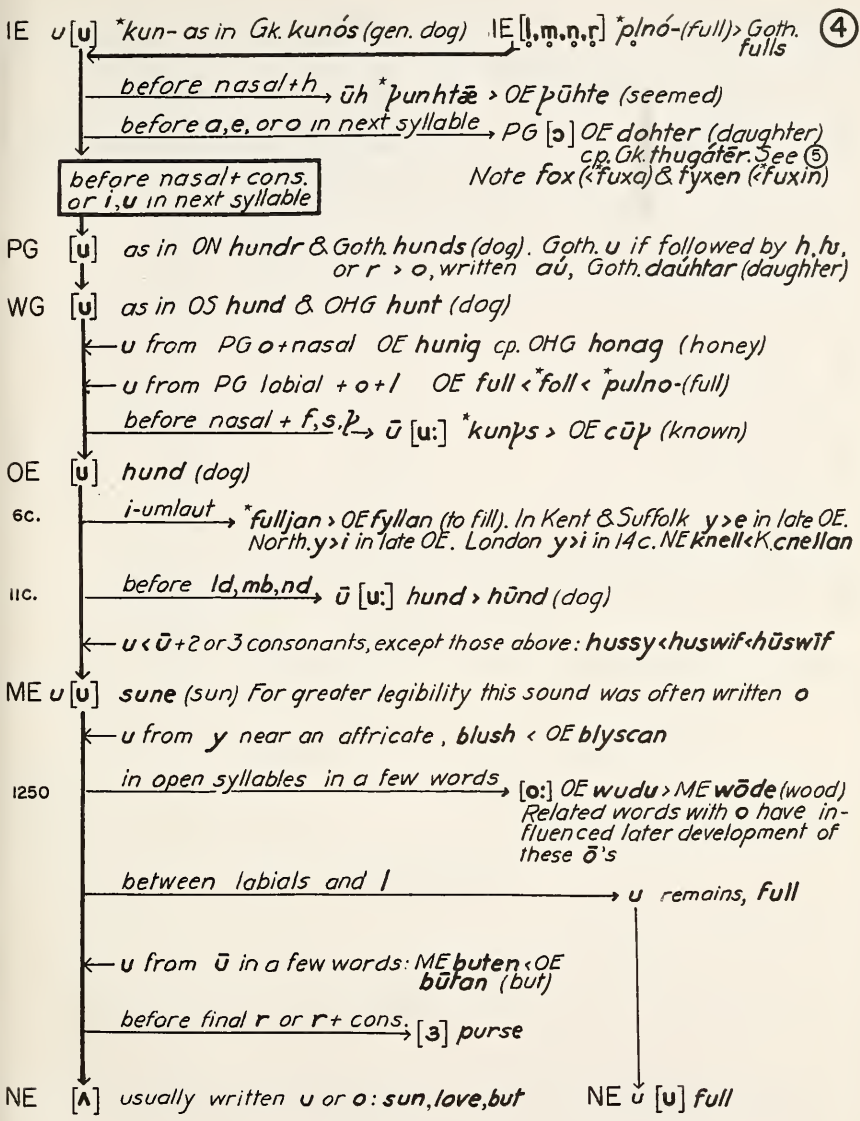 IE u [u] *kun- as in Gk. kunós (gen. dog) IE [l̥, m̥, n̥, r̥] *pl̥nó- (full) > Goth. ④
fulls
before nasal + h → ūh *þunhtǣ > OE þūhte (seemed)
before a, e, or o in next syllable → PG [ɔ] OE dohter (daughter)
cp. Gk. thugátēr. See ⑤
Note fox (<*fuxa) & fyxen (<*fuxin)
before nasal + cons.
or i, u in next syllable
PG [u] as in ON hundr & Goth. hunds (dog). Goth. u if followed by h, ƕ,
or r > o, written aú, Goth. daúhtar (daughter)
WG [u] as in OS hund & OHG hunt (dog)
← u from PG o + nasal OE hunig cp. OHG honag (honey)
← u from PG labial + o + l OE full < *foll < *pulno- (full)
before nasal + f, s, þ → ū [u:] *kunþs > OE cūþ (known)
OE [u] hund (dog)
6c. i-umlaut → *fulljan > OE fyllan (to fill). In Kent & Suffolk y>e in late OE.
North. y>i in late OE. London y>i in 14c. NE knell<K. cnellan
11c. before ld, mb, nd → ū [u:] hund > hūnd (dog)
← u < ū + 2 or 3 consonants, except those above: hussy<huswif<hūswīf
ME u [u] sune (sun) For greater legibility this sound was often written o
← u from y near an affricate, blush < OE blyscan
1250 in open syllables in a few words → [o:] OE wudu > ME wōde (wood)
Related words with o have in-
fluenced later development of
these ō's
between labials and l → u remains, full
← u from ū in a few words: ME buten < OE
būtan (but)
before final r or r + cons. → [ɜ] purse
NE [ʌ] usually written u or o: sun, love, but NE u [u] full